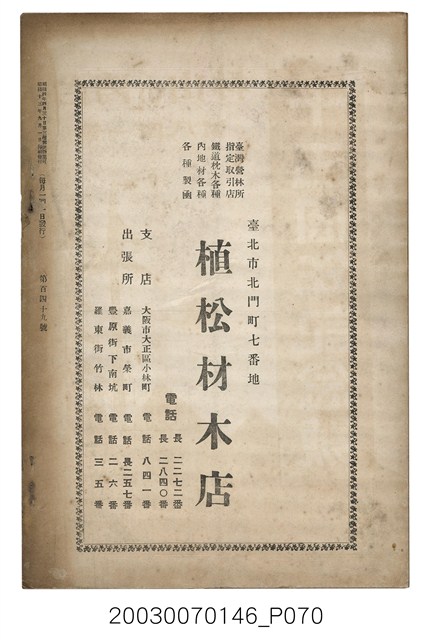 臺灣營林所
指定取引店
鐵道枕木各種
內地材各種
各種製函
臺北市北門町七番地
植松材木店
電話 長 二二七二番
長 二八四〇番
支店 大阪市大正區小林町 電話 八四一番
出張所 嘉義市榮町 電話 長二五七番
豐原街下南坑 電話 二六番
羅東街竹林 電話 三五番
第百四十九號
20030070146_P070